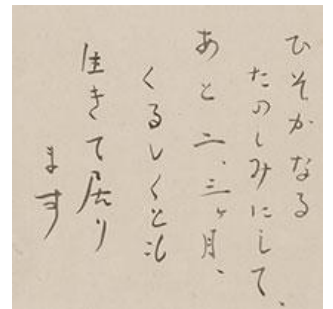 ひそかなる
たのしみにして、
あと二、三ヶ月、
くるしくとも
生きて居り
ます